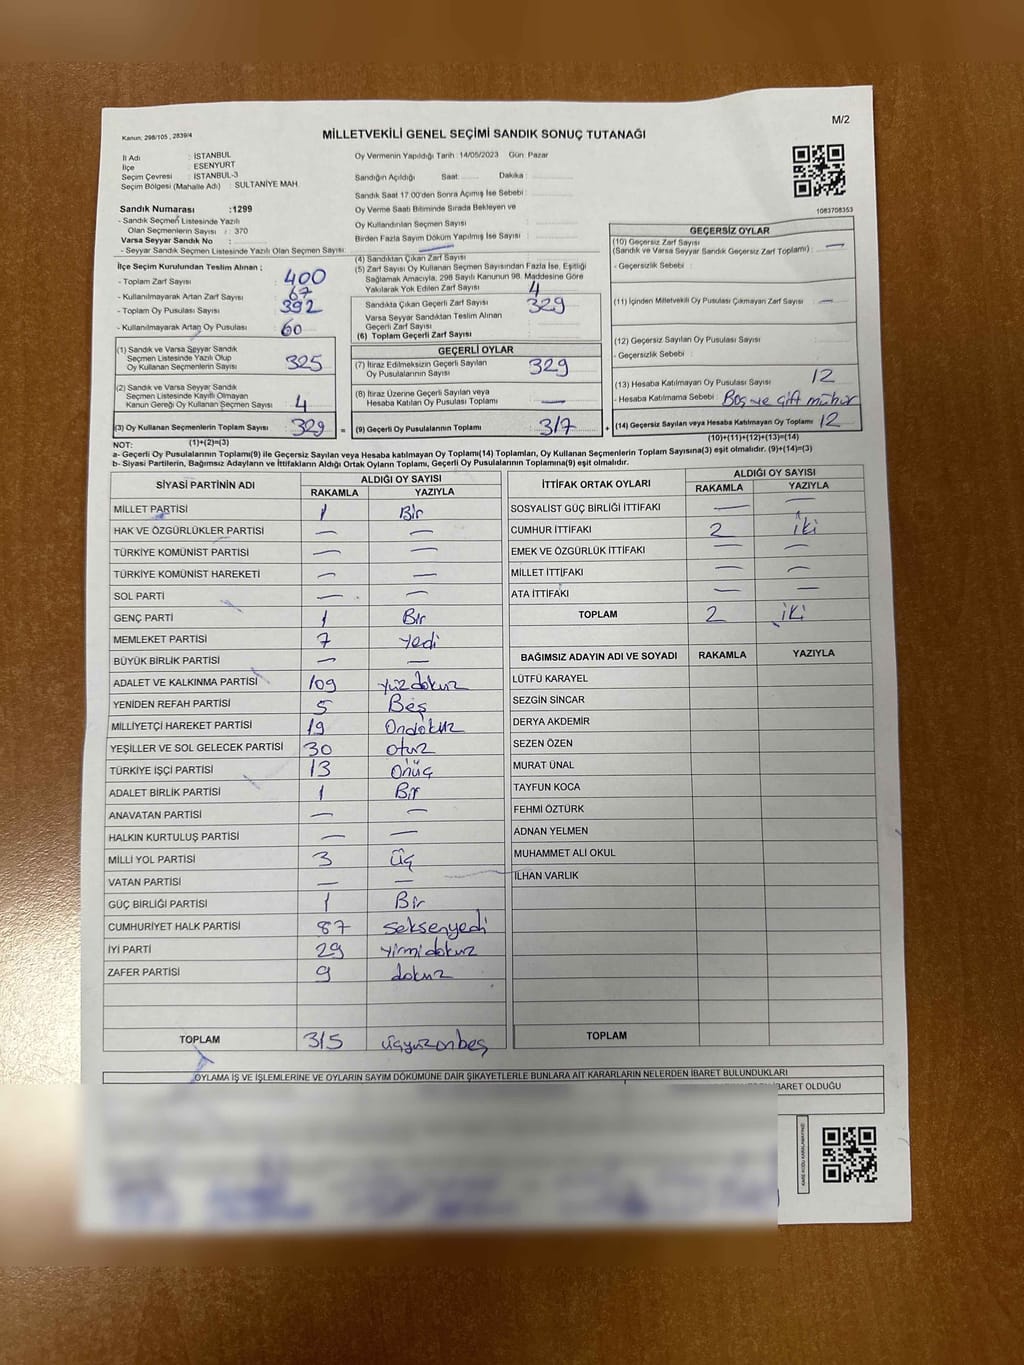 M/2
Kanun: 298/105 , 2839/4
MİLLETVEKİLİ GENEL SEÇİMİ SANDIK SONUÇ TUTANAĞI
İl Adı : İSTANBUL
İlçe : ESENYURT
Seçim Çevresi : İSTANBUL-3
Seçim Bölgesi (Mahalle Adı) : SULTANİYE MAH.
Sandık Numarası :1299
- Sandık Seçmen Listesinde Yazılı
Olan Seçmenlerin Sayısı : 370
Varsa Seyyar Sandık No :
- Seyyar Sandık Seçmen Listesinde Yazılı Olan Seçmen Sayısı:
Oy Vermenin Yapıldığı Tarih :14/05/2023 Gün: Pazar
Sandığın Açıldığı Saat: Dakika:
Sandık Saat 17.00'den Sonra Açımış İse Sebebi :
Oy Verme Saati Bitiminde Sırada Bekleyen ve
Oy Kullandırılan Seçmen Sayısı :
Birden Fazla Sayım Döküm Yapılmış İse Sayısı :
1083708353
İlçe Seçim Kurulundan Teslim Alınan ;
- Toplam Zarf Sayısı : 400
- Kullanılmayarak Artan Zarf Sayısı : 67
- Toplam Oy Pusulası : 392
- Kullanılmayarak Artan Oy Pusulası : 60
(1) Sandık ve Varsa Seyyar Sandık
Seçmen Listesinde Yazılı Olup
Oy Kullanan Seçmenlerin Sayısı : 325
(2) Sandık ve Varsa Seyyar Sandık
Seçmen Listesinde Kayıtlı Olmayan
Kanun Gereği Oy Kullanan Seçmen Sayısı : 4
(3) Oy Kullanan Seçmenlerin Toplam Sayısı : 329 =
(4) Sandıktan Çıkan Zarf Sayısı :
(5) Zarf Sayısı Oy Kullanan Seçmen Sayısından Fazla İse, Eşitliği
Sağlamak Amacıyla, 298 Sayılı Kanunun 98. Maddesine Göre
Yakılarak Yok Edilen Zarf Sayısı : 4
Sandıkta Çıkan Geçerli Zarf Sayısı : 329
Varsa Seyyar Sandıktan Teslim Alınan
Geçerli Zarf Sayısı :
(6) Toplam Geçerli Zarf Sayısı :
GEÇERLİ OYLAR
(7) İtiraz Edilmeksizin Geçerli Sayılan
Oy Pusulalarının Sayısı : 329
(8) İtiraz Üzerine Geçerli Sayılan veya
Hesaba Katılan Oy Pusulası Toplamı : —
(9) Geçerli Oy Pusulalarının Toplamı : 317 +
GEÇERSİZ OYLAR
(10) Geçersiz Zarf Sayısı : —
(Sandık ve Varsa Seyyar Sandık Geçersiz Zarf Toplamı)
- Geçersizlik Sebebi :
(11) İçinden Milletvekili Oy Pusulası Çıkmayan Zarf Sayısı : —
(12) Geçersiz Sayılan Oy Pusulası Sayısı :
- Geçersizlik Sebebi :
(13) Hesaba Katılmayan Oy Pusulası Sayısı : 12
- Hesaba Katılmama Sebebi : Boş ve çift mühür
(14) Geçersiz Sayılan veya Hesaba Katılmayan Oy Toplamı : 12
NOT: (1)+(2)=(3)
(10)+(11)+(12)+(13)=(14)
a- Geçerli Oy Pusulalarının Toplamı(9) ile Geçersiz Sayılan veya Hesaba Katılmayan Oy Toplamı(14) Toplamları, Oy Kullanan Seçmenlerin Toplam Sayısına(3) eşit olmalıdır. (9)+(14)=(3)
b- Siyasi Partilerin, Bağımsız Adayların ve İttifakların Aldığı Ortak Oyların Toplamı, Geçerli Oy Pusulalarının Toplamına(9) eşit olmalıdır.
SİYASİ PARTİNİN ADI ALDIĞI OY SAYISI
RAKAMLA YAZIYLA
MİLLET PARTİSİ 1 Bir
HAK VE ÖZGÜRLÜKLER PARTİSİ — —
TÜRKİYE KOMÜNİST PARTİSİ — —
TÜRKİYE KOMÜNİST HAREKETİ — —
SOL PARTİ — —
GENÇ PARTİ 1 Bir
MEMLEKET PARTİSİ 7 yedi
BÜYÜK BİRLİK PARTİSİ — —
ADALET VE KALKINMA PARTİSİ 109 yüzdokuz
YENİDEN REFAH PARTİSİ 5 Beş
MİLLİYETÇİ HAREKET PARTİSİ 19 Ondokuz
YEŞİLLER VE SOL GELECEK PARTİSİ 30 otuz
TÜRKİYE İŞÇİ PARTİSİ 13 onüç
ADALET BİRLİK PARTİSİ 1 Bir
ANAVATAN PARTİSİ — —
HALKIN KURTULUŞ PARTİSİ — —
MİLLİ YOL PARTİSİ 3 üç
VATAN PARTİSİ — —
GÜÇ BİRLİĞİ PARTİSİ 1 Bir
CUMHURİYET HALK PARTİSİ 87 seksenyedi
İYİ PARTİ 29 yirmidokuz
ZAFER PARTİSİ 9 dokuz
TOPLAM 315 üçyüzonbeş
İTTİFAK ORTAK OYLARI ALDIĞI OY SAYISI
RAKAMLA YAZIYLA
SOSYALİST GÜÇ BİRLİĞİ İTTİFAKI — —
CUMHUR İTTİFAKI 2 iki
EMEK VE ÖZGÜRLÜK İTTİFAKI — —
MİLLET İTTİFAKI — —
ATA İTTİFAKI — —
TOPLAM 2 iki
BAĞIMSIZ ADAYIN ADI VE SOYADI RAKAMLA YAZIYLA
LÜTFÜ KARAYEL
SEZGİN SİNCAR
DERYA AKDEMİR
SEZEN ÖZEN
MURAT ÜNAL
TAYFUN KOCA
FEHMİ ÖZTÜRK
ADNAN YELMEN
MUHAMMET ALİ OKUL
İLHAN VARLIK
TOPLAM
OYLAMA İŞ VE İŞLEMLERİNE VE OYLARIN SAYIM DÖKÜMÜNE DAİR ŞİKAYETLERLE BUNLARA AİT KARARLARIN NELERDEN İBARET BULUNDUKLARI
İBARET OLDUĞU
KARE KODU KARALAMAYINIZ!